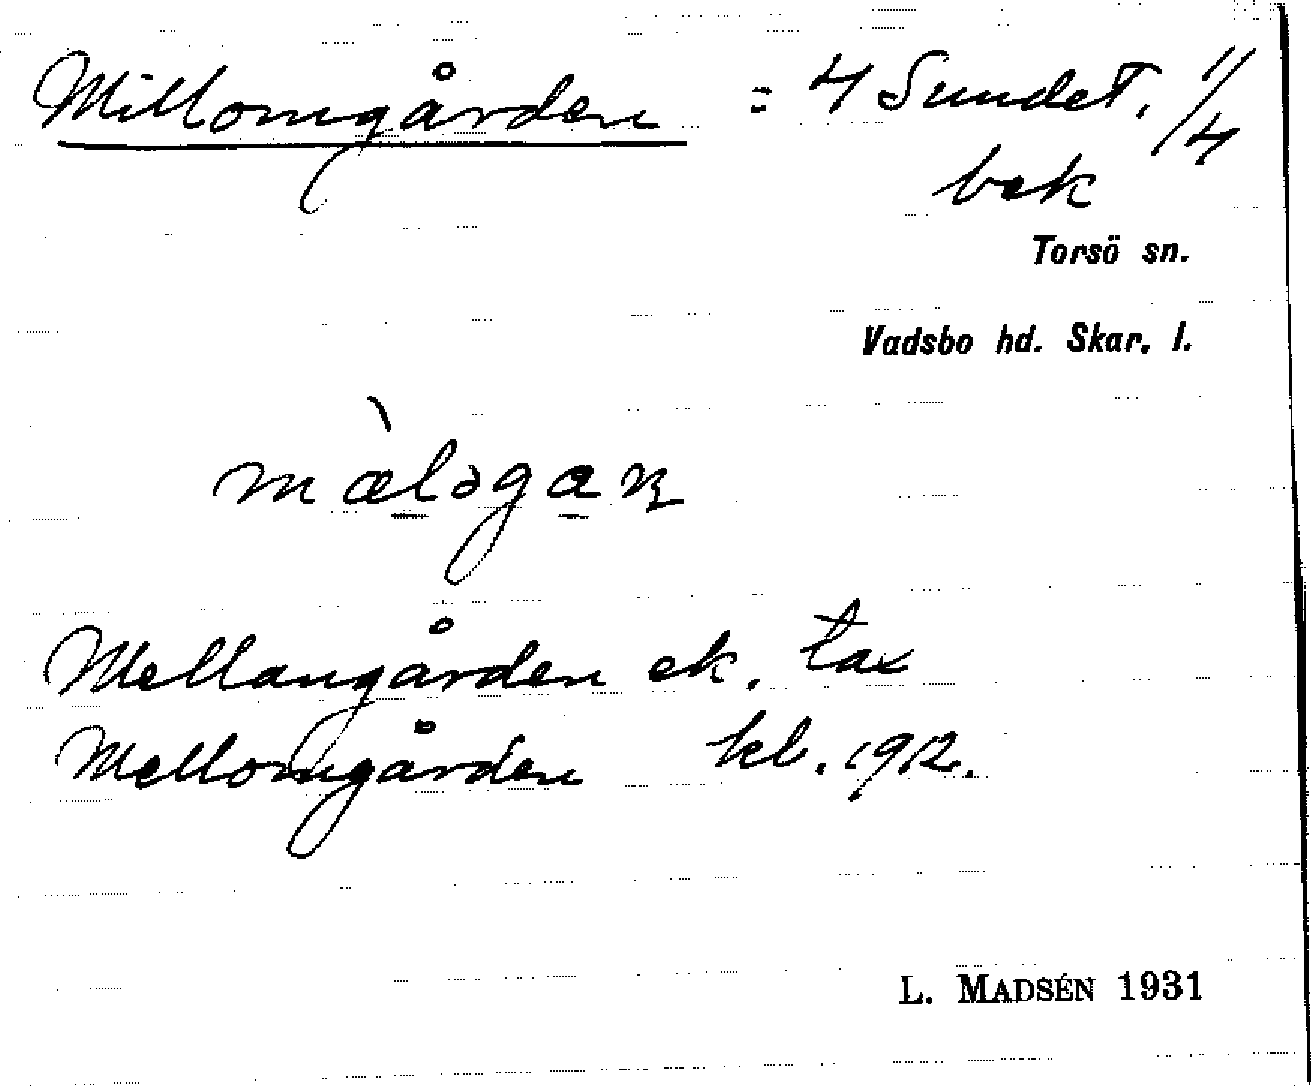 Millomgården = 4 Sundet. 1/4
bek
Torsö sn.
Vadsbo hd. Skar. l.
Mellangården ek. tax
Mellomgården kb. 1912.
L. MADSÉN 1931